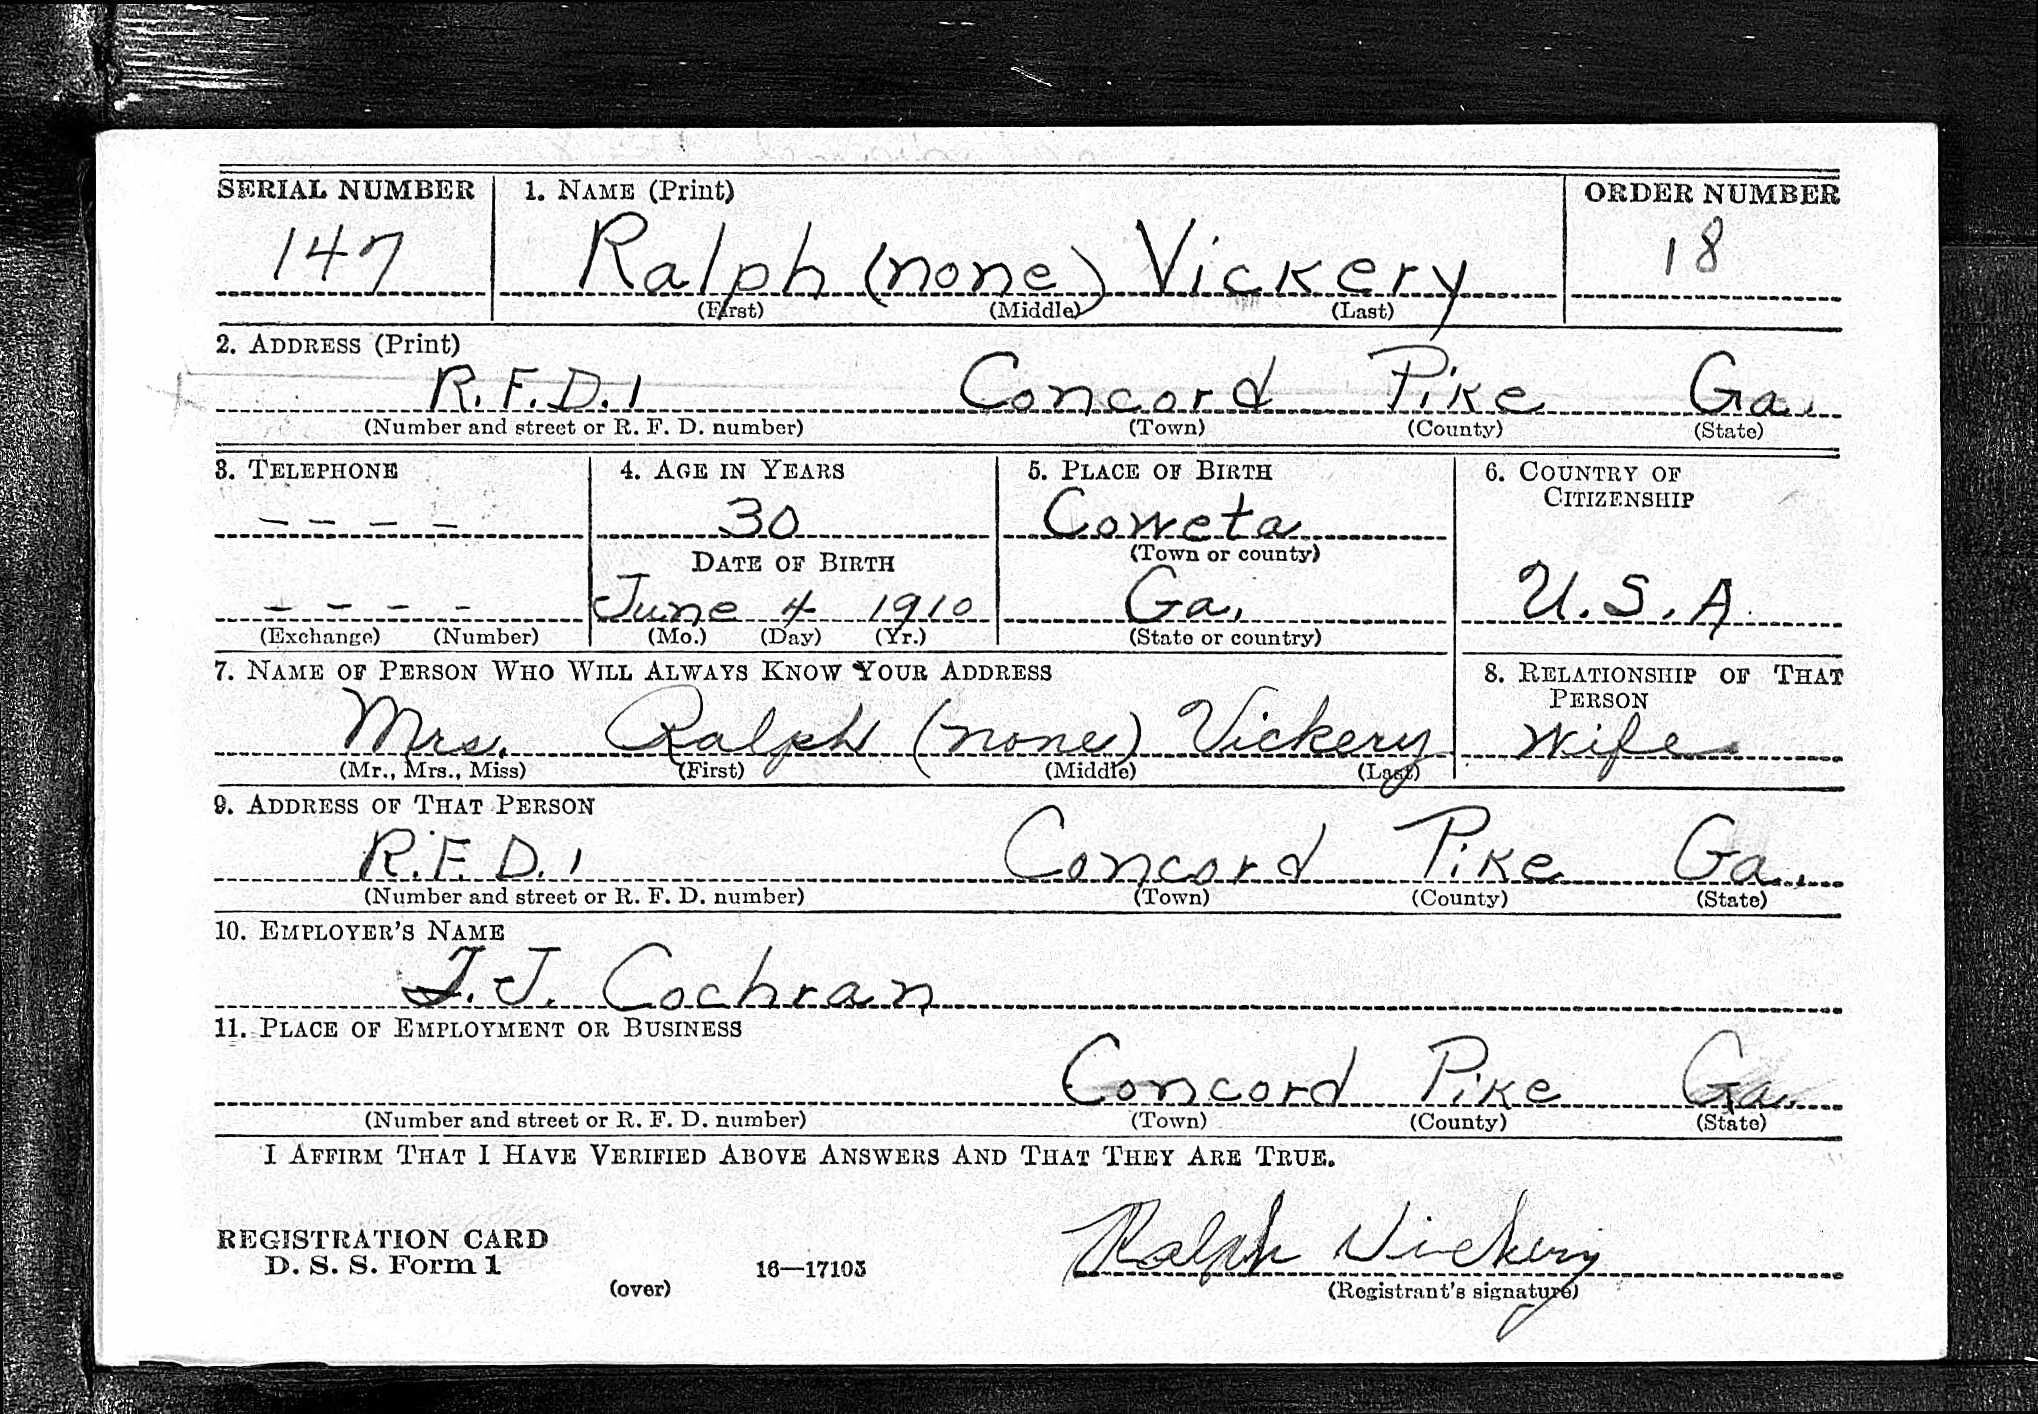 SERIAL NUMBER 1. NAME (Print) ORDER NUMBER
147 Ralph (none) Vickery 18
(First) (Middle) (Last)
2. ADDRESS (Print)
R.F.D.1 Concord Pike Ga.
(Number and street or R. F. D. number) (Town) (County) (State)
3. TELEPHONE 4. AGE IN YEARS 5. PLACE OF BIRTH 6. COUNTRY OF
CITIZENSHIP
– – – – 30 Coweta
DATE OF BIRTH (Town or county)
– – – – June 4 1910 Ga. U.S.A.
(Exchange) (Number) (Mo.) (Day) (Yr.) (State or country)
7. NAME OF PERSON WHO WILL ALWAYS KNOW YOUR ADDRESS 8. RELATIONSHIP OF THAT
PERSON
Mrs. Ralph (none) Vickery Wife
(Mr., Mrs., Miss) (First) (Middle) (Last)
9. ADDRESS OF THAT PERSON
R.F.D.1 Concord Pike Ga.
(Number and street or R. F. D. number) (Town) (County) (State)
10. EMPLOYER'S NAME
J. Cochran
11. PLACE OF EMPLOYMENT OR BUSINESS
Concord Pike Ga.
(Number and street or R. F. D. number) (Town) (County) (State)
I AFFIRM THAT I HAVE VERIFIED ABOVE ANSWERS AND THAT THEY ARE TRUE.
Ralph Vickery
REGISTRATION CARD
D. S. S. Form 1 16—17105
(over) (Registrant's signature)